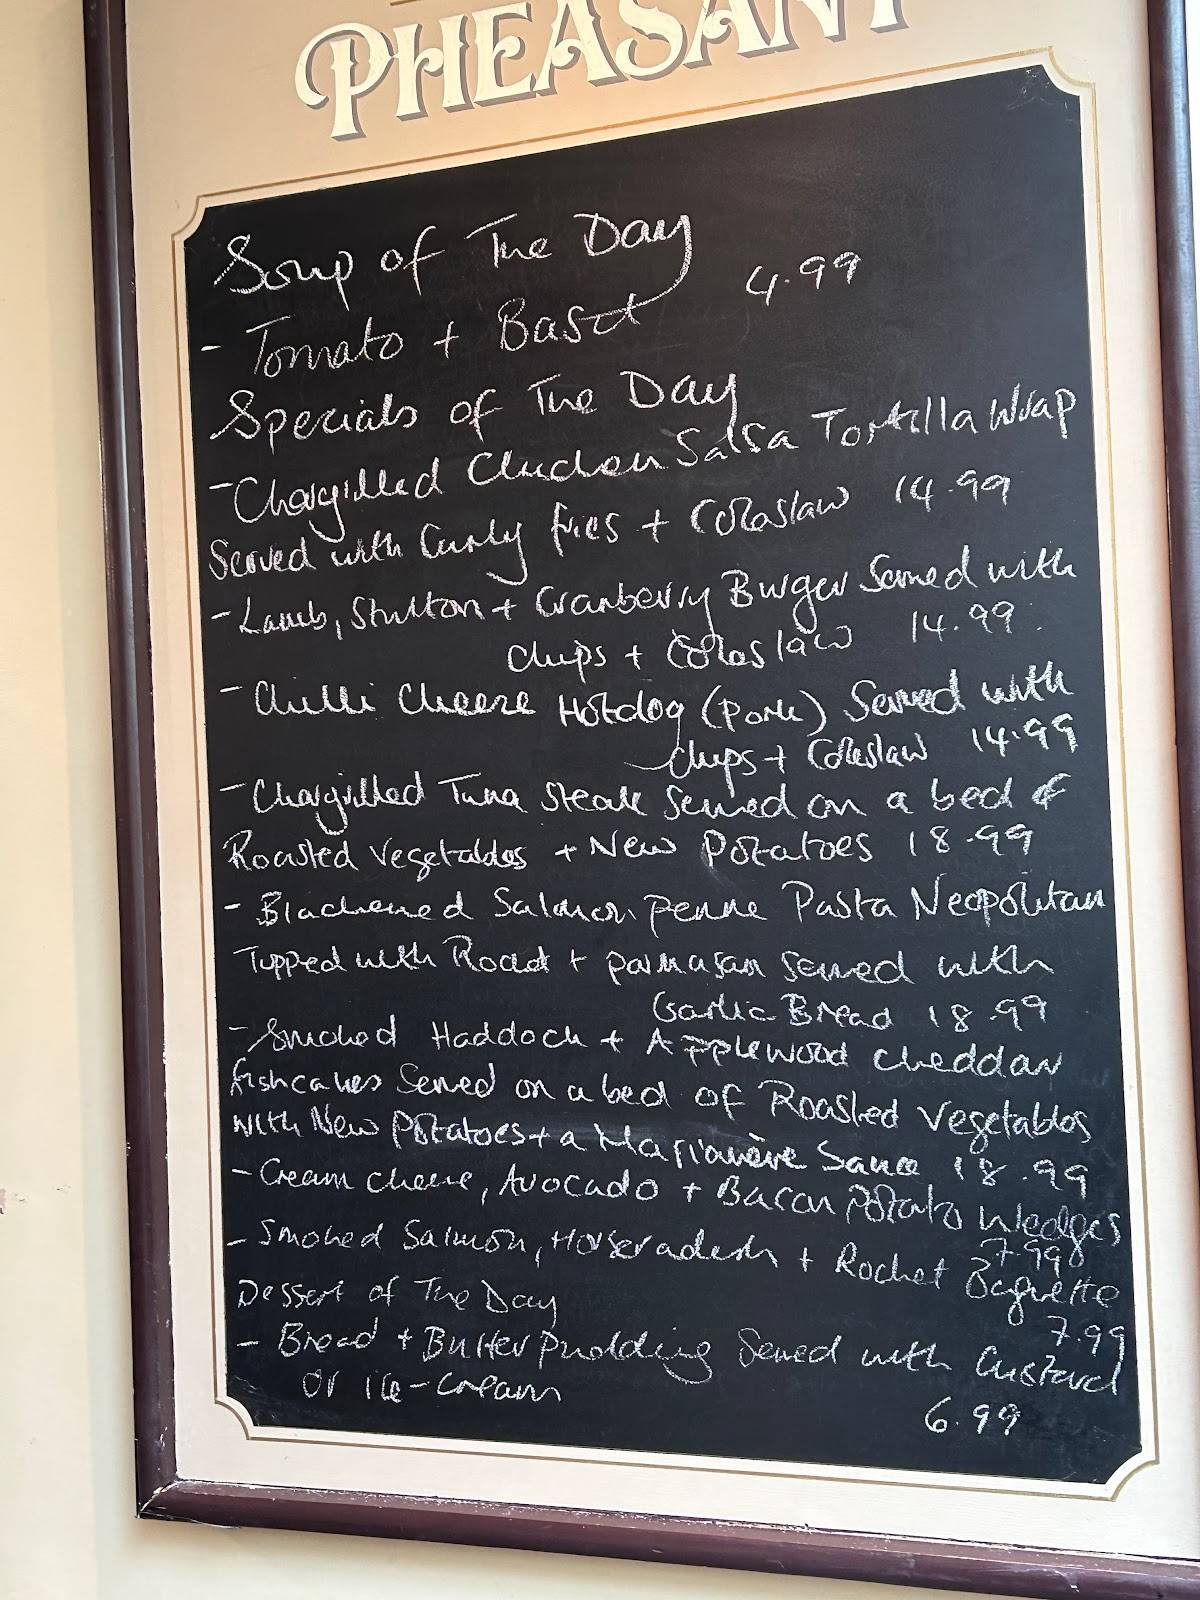 PHEASANT
Soup of The Day
- Tomato + Basil 4.99
Specials of The Day
- Chargrilled Chicken Salsa Tortilla Wrap
Served with Curly fries + Coleslaw 14.99
- Lamb, Stilton + Cranberry Burger Served with
chips + Coleslaw 14.99
- Chilli Cheese Hotdog (Pork) Served with
chips + Coleslaw 14.99
- Chargrilled Tuna Steak Served on a bed of
Roasted Vegetables + New Potatoes 18.99
- Blackened Salmon penne Pasta Neopolitan
Topped with Rocket + parmasan served with
Garlic Bread 18.99
- Smoked Haddock + Applewood cheddar
fishcakes Served on a bed of Roasted Vegetables
with New Potatoes + a Sauce 18.99
- Cream cheese, Avocado + Bacon Potato Wedges
7.99
- Smoked Salmon, Horseradish + Rocket Baguette
7.99
Dessert of The Day
- Bread + Butter Pudding Served with Custard
or ice-cream 6.99